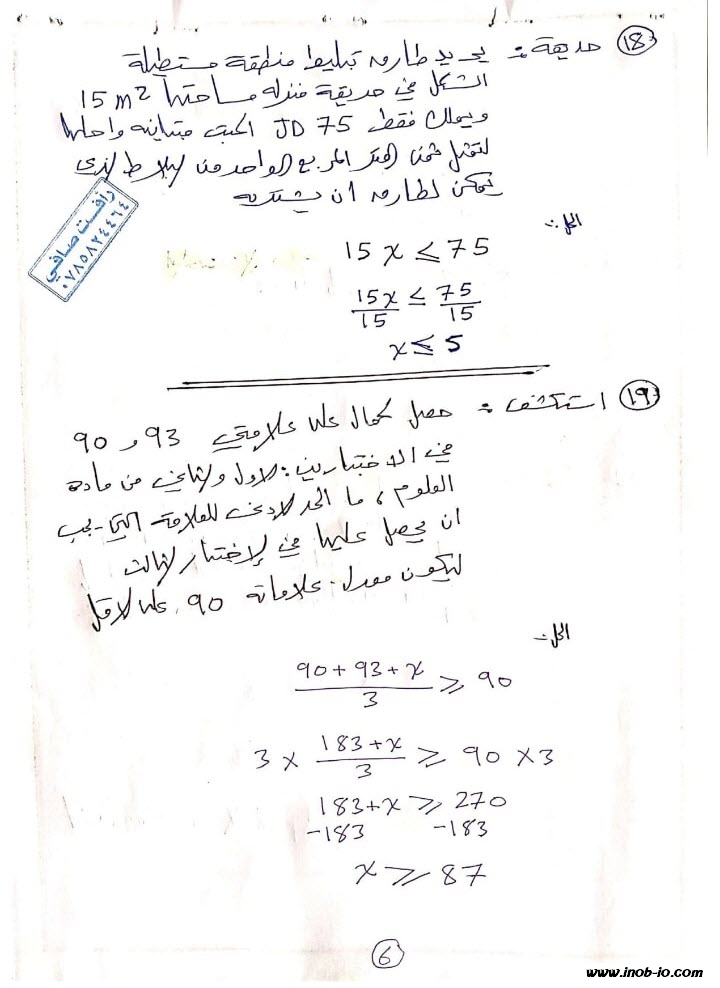 (18) حديقة : يريد طارق تبليط منطقة مستطيلة
الشكل في حديقة منزله مساحتها 15 m²
ويملك فقط JD 75 اكتب متباينة واحلها
لتمثل ثمن المتر المربع الواحد من البلاط الذي
يمكن لطارق ان يشتريه
رأفت صافي
٠٧٨٥٨٢٤٤٦٤
الحل :-
15 x ≤ 75
15x/15 ≤ 75/15
x ≤ 5
(19) استكشف : حصل كمال على علامتي 93 و 90
في الاختبارين : الاول والثاني من مادة
العلوم ، ما الحد الادنى للعلامة التي يجب
ان يحصل عليها في الاختبار الثالث
ليكون معدل علاماته 90 على الاقل
الحل :-
(90 + 93 + x)/3 ≥ 90
3 × (183 + x)/3 ≥ 90 × 3
183 + x ≥ 270
-183 -183
x ≥ 87
6
www.inob-io.com